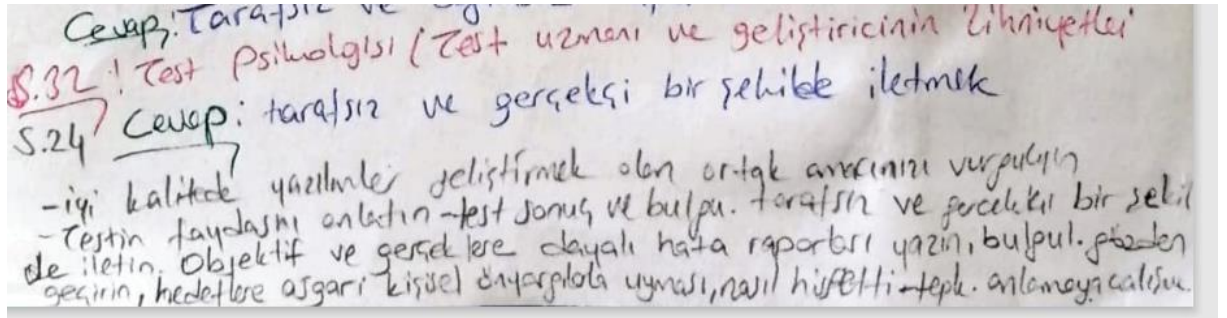 Cevap: Tarafsız ve
S.32 ! Test Psikolgisi (Test uzmanı ve geliştiricinin Zihniyetleri
S.24 Cevap: tarafsız ve gerçekçi bir şekilde iletmek
-iyi kalitede yazılımlar geliştirmek olan ortak amacınızı vurgulayın
-Testin faydasını anlatın-test sonuç ve bulgu. tarafsız ve gerçekçi bir şekil
de iletin. Objektif ve gerçeklere dayalı hata raporları yazın, bulgul. gözden
geçirin, hedeflere asgari kişisel önyargılarla uyması, nasıl hissetti-tepk. anlamaya çalışın.